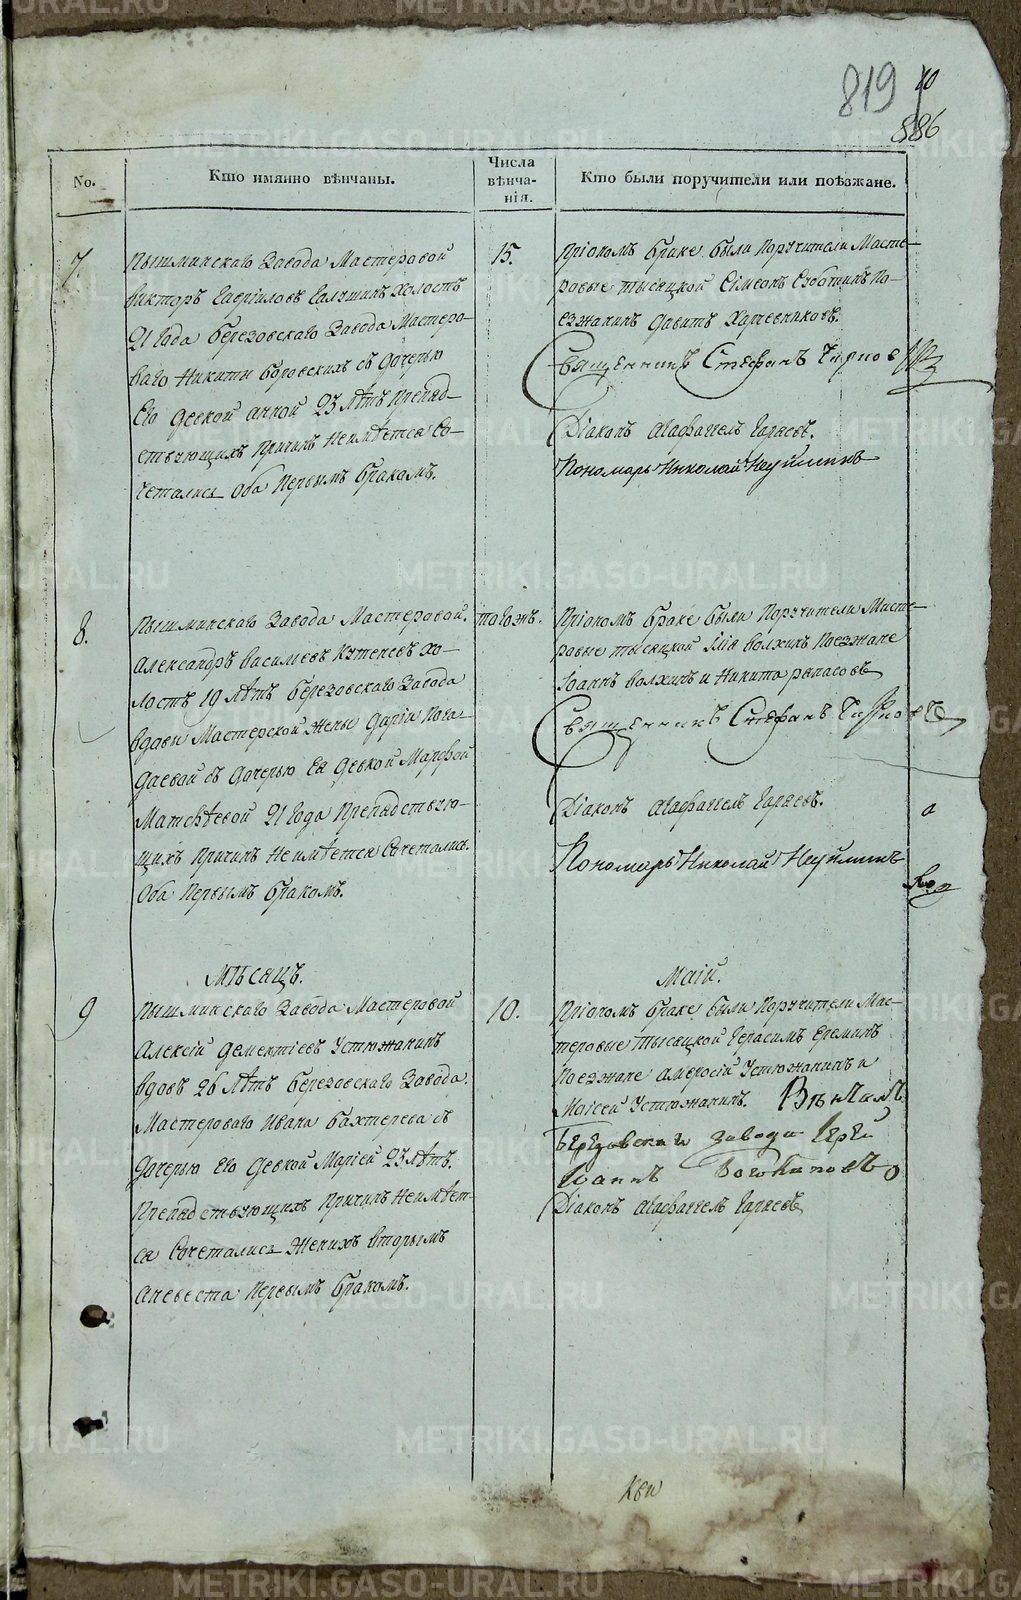 819 10
886
No.
Кто имянно вѣнчаны.
Числа
вѣнча-
нія.
Кто были поручители или поѣзжане.
7.
Пышминскаго Завода Мастеровой
Викторъ Гавріловъ Галушинъ холостъ
21 года Березовскаго Завода Мастеро-
ваго Никиты Боровскихъ съ дочерью
Его девкой Анной 23 лѣтъ Препяд-
ствующихъ Причинъ неимѣется Со-
четались Оба Первымъ бракомъ.
15.
Пріономъ браке были Поручители Масте-
ровые тысяцкой Сімеонъ Субботинъ По-
езжанинъ Давитъ Харчевниковъ.
Священникъ Стефанъ
Діаконъ Агафангелъ Гаряевъ.
Пономарь Николай Неуйминъ
8.
Пышминскаго Завода Мастеровой
Александръ Василиевъ Кутеневъ хо-
лостъ 19 лѣтъ Березовскаго Завода
вдовы Мастерской жены Даріи
съ дочерью Ея девкой Марфой
Матвѣевой 21 года Препядствую-
щихъ Причинъ Неимѣется Сочетались
Оба Первымъ бракомъ.
тогожъ.
Пріономъ браке были Поручители Масте-
ровые тысяцкой Ілія Волхинъ Поезжане
Іоаннъ Волхинъ и Никита
Священникъ Стефанъ
Діаконъ Агафангелъ Гаряевъ.
Пономарь Николай Неуйминъ
Мѣсяцъ.
Маій.
9
Пышминскаго Завода Мастеровой
Алексій Дементіевъ Устюжанинъ
вдовъ 26 лѣтъ Березовскаго Завода
Мастероваго Ивана Бахтерева съ
дочерью Его девкой Маріей 23 лѣтъ.
Препядствующихъ Причинъ Неимѣет-
ся Сочетались Женихъ вторымъ
а невеста Первымъ бракомъ.
10.
Пріономъ браке были Поручители Мас-
теровые Тысяцкой Герасимъ Ереминъ
Поезжане Амвросій Устюжанинъ и
Моісей Устюжанинъ. Вѣнчалъ
Березовскаго завода Іерей
Іоаннъ
Діаконъ Агафангелъ Гаряевъ
METRIKI.GASO-URAL.RU